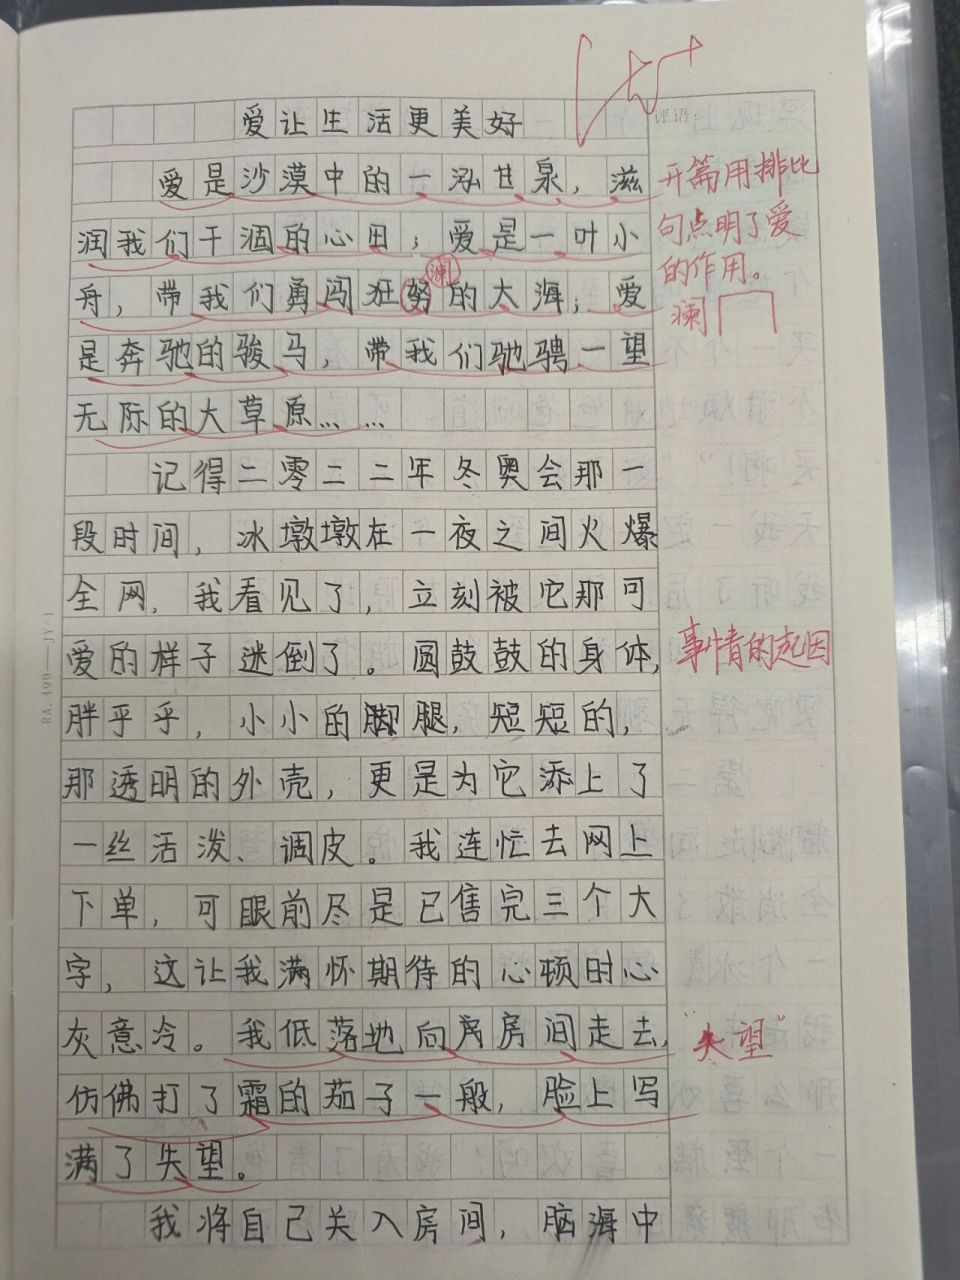 爱让生活更美好
评语:
爱是沙漠中的一泓甘泉，滋
润我们干涸的心田；爱是一叶小
舟，带我们勇闯狂努的大海；爱
澜
是奔驰的骏马，带我们驰骋一望
无际的大草原……
开篇用排比
句点明了爱
的作用。
澜
记得二零二二年冬奥会那一
段时间，冰墩墩在一夜之间火爆
全网，我看见了，立刻被它那可
爱的样子迷倒了。圆鼓鼓的身体，
胖乎乎，小小的脚腿，短短的，
那透明的外壳，更是为它添上了
一丝活泼、调皮。我连忙去网上
下单，可眼前尽是已售完三个大
字，这让我满怀期待的心顿时心
灰意冷。我低落地向房间走去，
仿佛打了霜的茄子一般，脸上写
满了失望。
事情的起因
"失望"
我将自己关入房间，脑海中
RA.499—JY-1